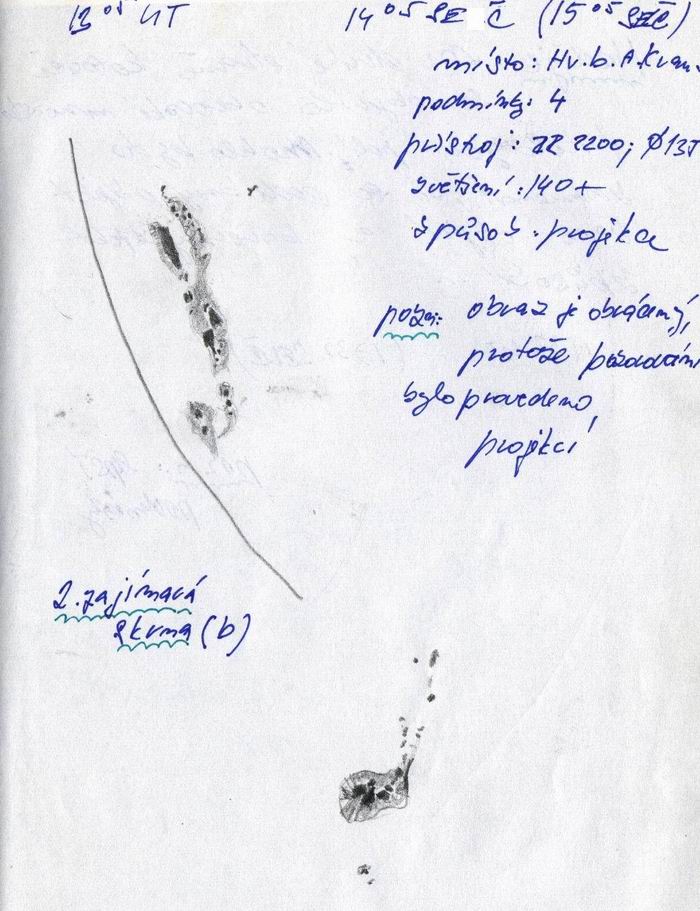 13 05 UT 14 05 SEČ (15 05 SEČ)
místo: Hv.b.A.Kvan
podmínky: 4
přístroj: ZZ 2200; Ø 135
zvětšení: 140×
způsob: projekce
pozn: obraz je obrácený,
protože pozorování
bylo provedeno
projekcí
2. zajímavá
skvrna (b)